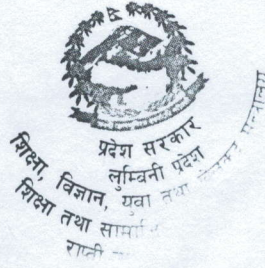 प्रदेश सरकार
लुम्बिनी प्रदेश
शिक्षा, विज्ञान, युवा तथा खेलकुद मन्त्रालय
शिक्षा तथा सामा
राप्ती